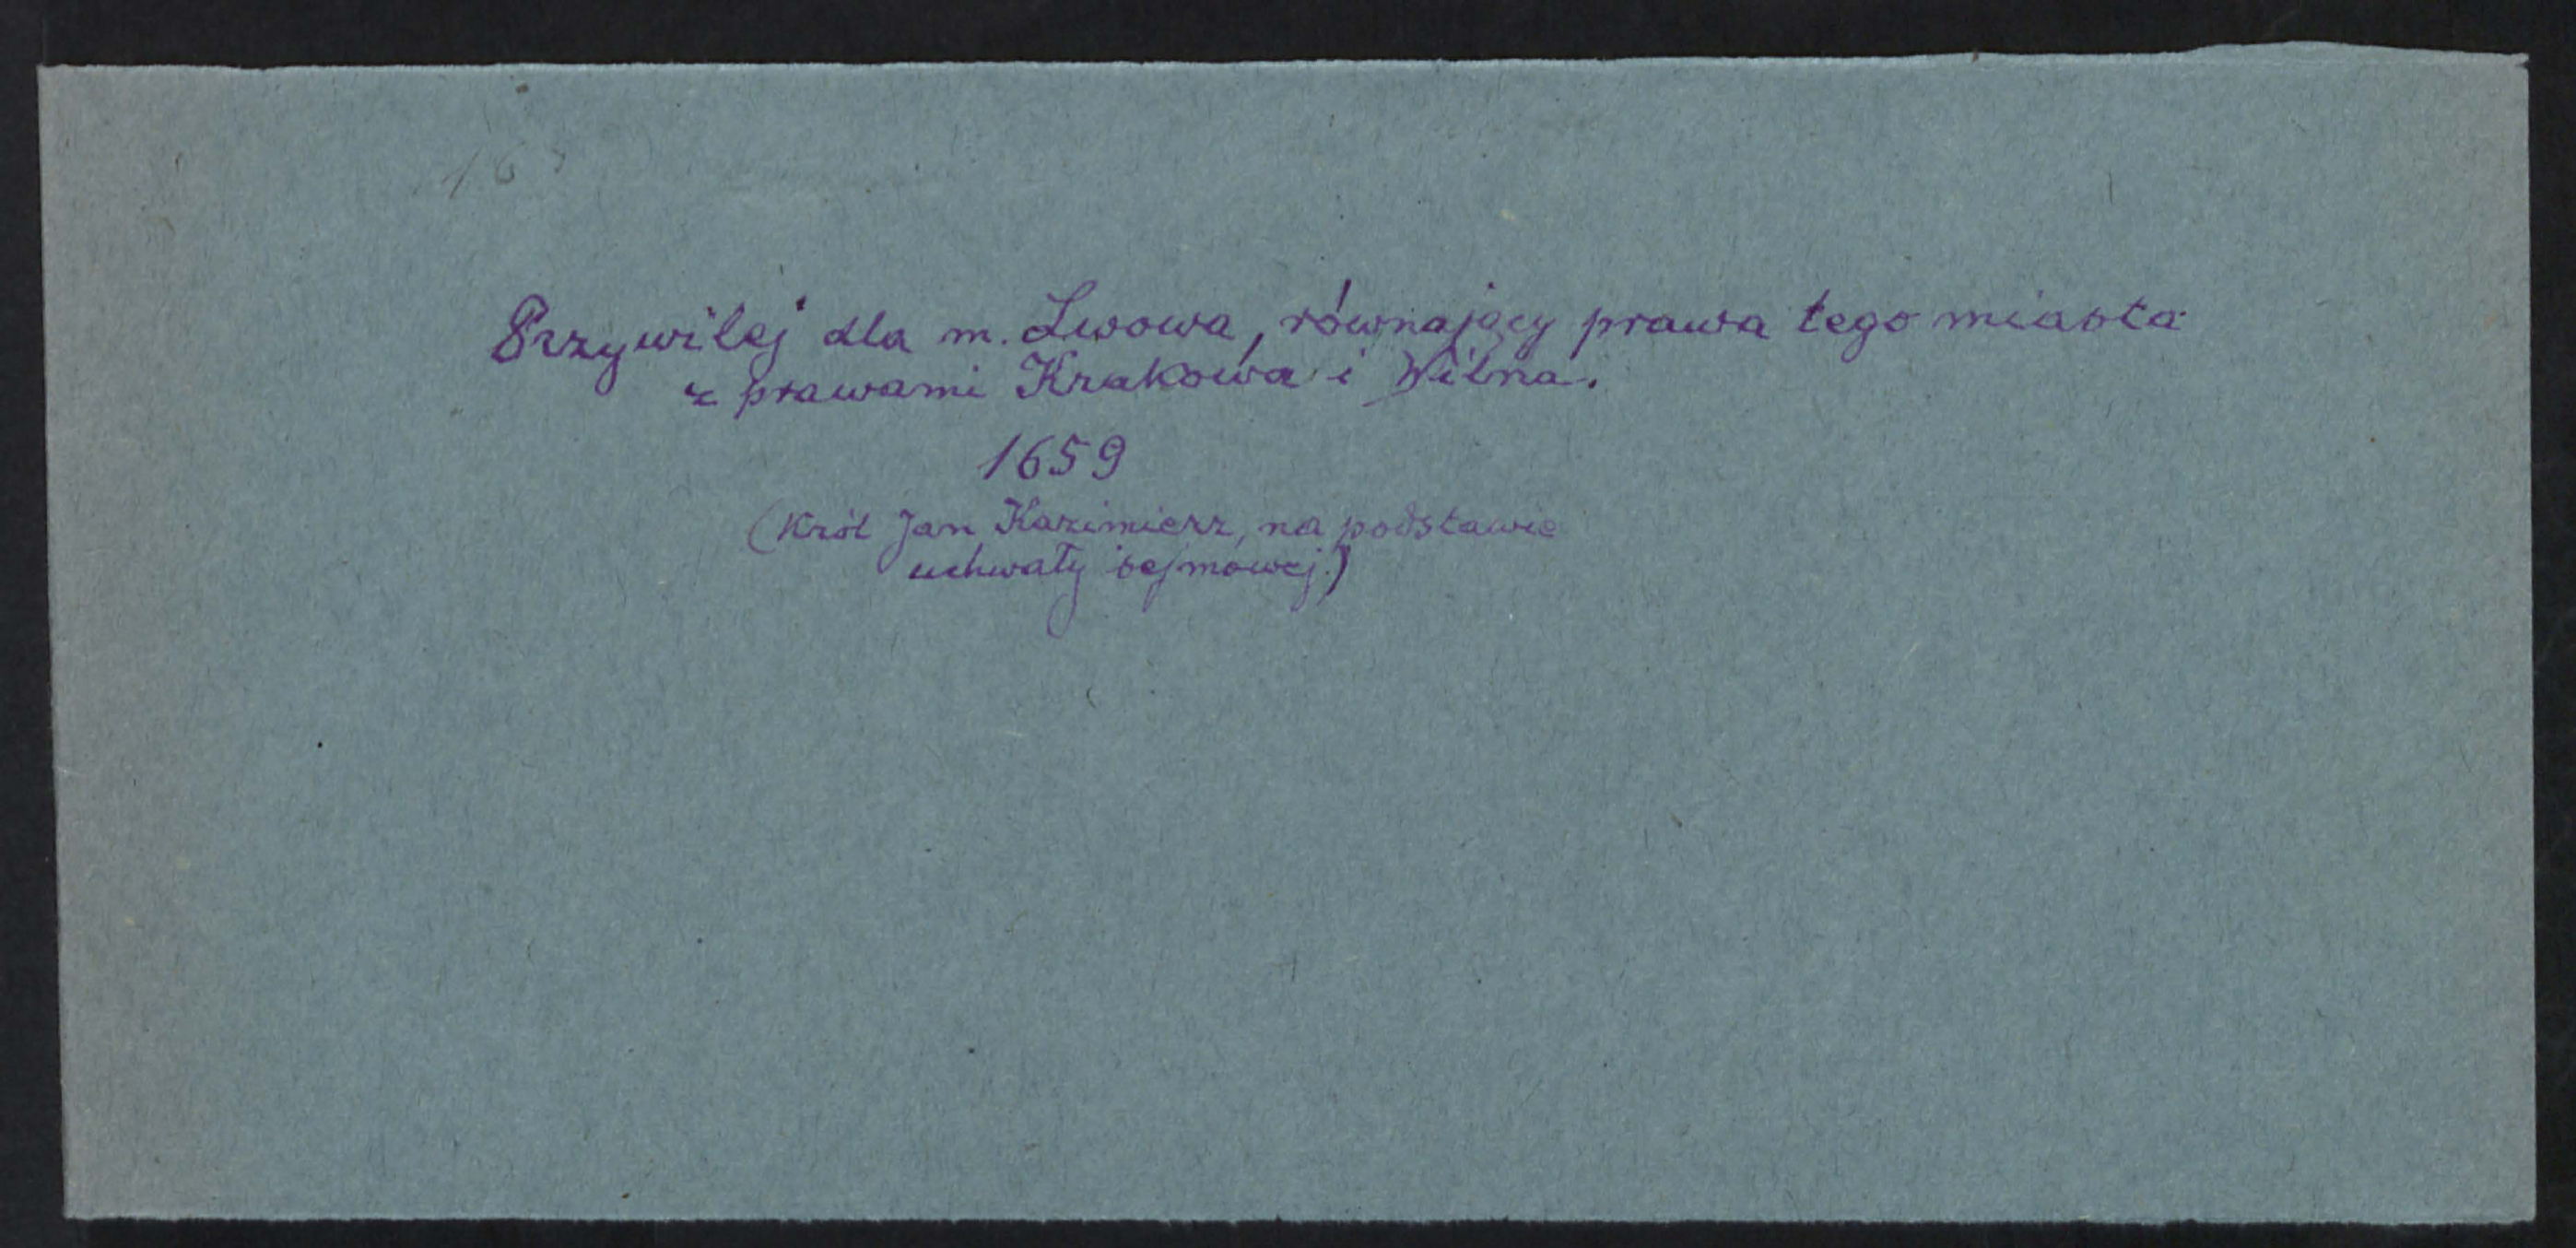 Przywilej dla m. Lwowa, równający prawa tego miasta
z prawami Krakowa i Wilna.
1659
(Król Jan Kazimierz, na podstawie
uchwały sejmowej.)